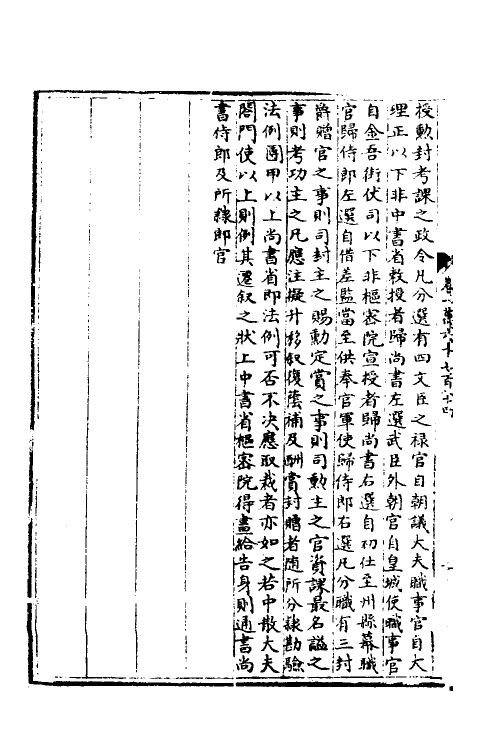 授勳封考課之政令凡分選有四文臣之祿官自朝議大夫職事官自大
理正以下非中書省敕授者歸尚書左選武臣外朝官自皇城使職事官
自金吾街仗司以下非樞密院宣授者歸尚書右選自初仕至州縣幕職
官歸侍郎左選自借差監當至供奉官軍使歸侍郎右選凡分職有三封
爵贈官之事則司封主之賜勳定賞之事則司勳主之官資課最名謚之
事則考功主之凡應注擬升移叙復蔭補及酬賞封贈者隨所分隸勘驗
法例團甲以上尚書省即法例可否不决應取裁者亦如之若中散大夫
閤門使以上則例其遷叙之狀上中書省樞密院得畫給告身則通書尚
書侍郎及所隸郎官